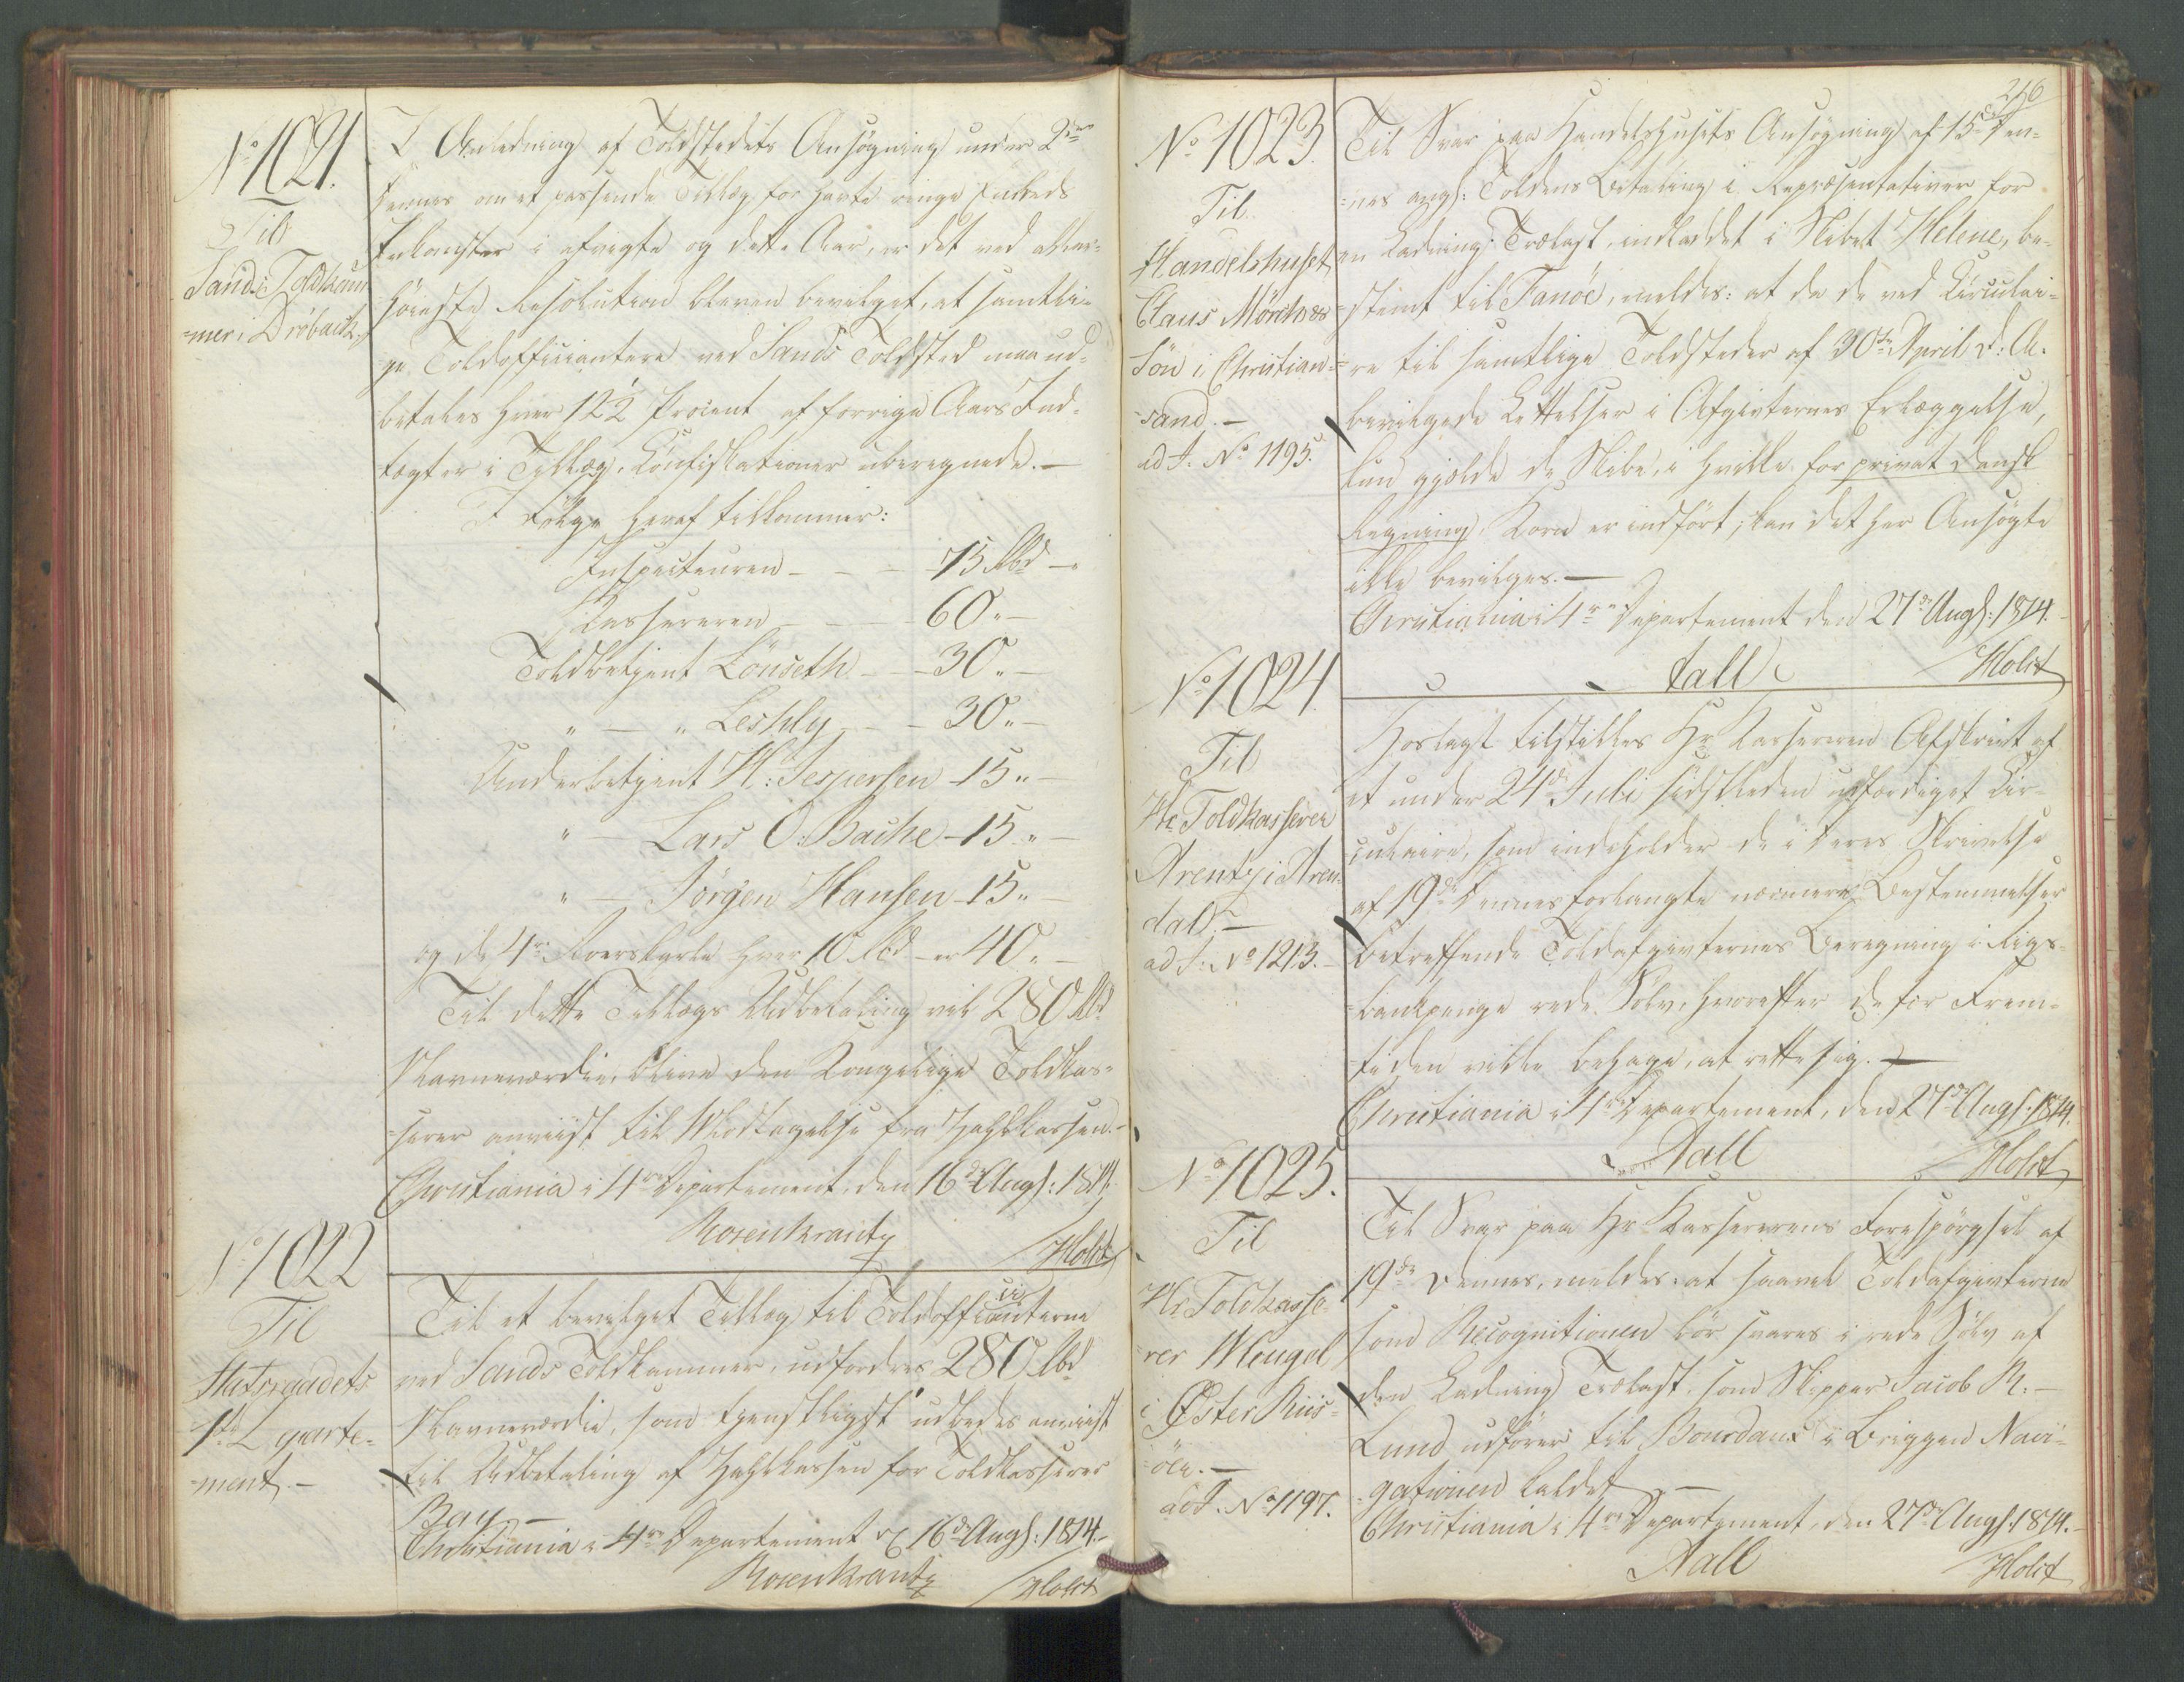 No 1021.
Til
Sands Toldkam-
-mer i Dröback.
I Anledning af Toldstedets Ansøgning under 2den
dennes om et passende Tillæg for havte ringe Embeds
Indkomster i afvigte og dette Aar, er det ved aller-
høieste Resolution bleven bevilget, at samtli-
ge Toldofficiantere ved Sands Toldsted maa ud-
betales hver 12½ Procent af forrige Aars Ind-
tægter i Tillæg, Confiskationer uberegnede. —
I Følge heraf tilkommer:
Inspecteuren - - - 75 Rbd -
Kassereren - - - 60 " -
Toldbetjent Lönseth - - 30 " -
" — " Leshly - - 30 " -
Underbetjent H: Jespersen - 15 " -
" — Lars O: Bache - 15 " -
" — Jörgen Hansen - 15 " -
og de 4re Roerskarle hver 10 Rbd - er 40 " -
Til dette Tillægs Udbetaling vil 280 Rbd
Navneværdie, blive den Kongelige Toldkas-
serer anviist til Modtagelse fra Zahlkassen. -
Christiania i 4re Departement, den 16de Augs: 1814.
Rosenkrantz
/Holst
No 1022
Til
Statsraadets
1ste Departe-
-ment. -
Til et bevilget Tillæg til Toldofficianterne
ved Sands Toldkammer, udfordres 280 Rbd
Navneværdie, som tjenstligst udbedes anviist
til Udbetaling af Zahlkassen for Toldkasserer
Bay. —
Christiania i 4re Departement d: 16de Augs: 1814. -
Rosenkrantz
/Holst
246
No 1023.
Til
Handelshuset
Claus Mörch &
Sön i Christian-
-sand. -
ad J. No 1195.
Til Svar paa Handelshusets Ansøgning af 15de den-
-nes angs: Toldens Betaling i Repræsentativer for
en Ladning Trælast, indladdet i Skibet Helene, be-
-stemt til Fanöe, meldes: at da de ved Circulai-
-re til samtlige Toldsteder af 30te April d: A:
bevilgede Lettelser i Afgivternes Erlæggelse,
kun gjælde de Skibe, i hvilke for privat dansk
Regning Korn er indført, kan det her Ansøgte
ikke bevilges. —
Christiania i 4re Departement den 27de Augs: 1814. -
Aall
/Holst
No 1024.
Til
Hr Toldkasserer
Arentz i Aren-
dal. -
ad J: No 1213. -
Hoslagt tilstilles Hr Kassereren Afskrivt af
et under 24de Juli sidstleden udfærdiget Cir-
culaire, som indeholder de i Deres Skrivelse
af 19de dennes forlangte nærmere Bestemmelser
betreffende Toldafgivternes Beregning i Rigs-
-bankpenge rede Sølv, hvorefter De for Frem-
-tiden ville behage, at rette sig. —
Christiania i 4re Departement, den 27de Augs: 1814.
Aall
/Holst
No 1025.
Til
Hr Toldkasse-
-rer Wengel
i Øster Riis-
-öer. -
ad J. No 1197.
Til Svar paa Hr Kassererens Forespørgsel af
19de dennes, meldes: at saavel Toldafgivterne
som Recognitionen bör svares i rede Sølv af
den Ladning Trælast, som Skipper Jacob R. -
Lund udfører til Bourdaux i Briggen Navi-
-gationen kaldet. —
Christiania i 4re Departement, den 27de Augs: 1814. -
Aall
/Holst